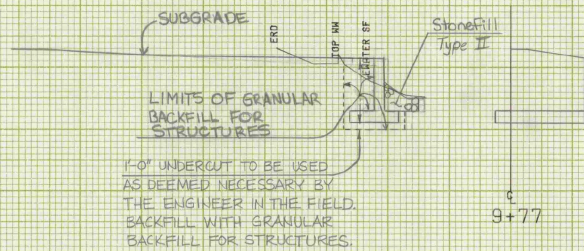 SUBGRADE
ERO
TOP WW
EWATER SF
Stonefill
Type II
LIMITS OF GRANULAR
BACKFILL FOR
STRUCTURES
1'-0" UNDERCUT TO BE USED
AS DEEMED NECESSARY BY
THE ENGINEER IN THE FIELD.
BACKFILL WITH GRANULAR
BACKFILL FOR STRUCTURES.
℄
9+77